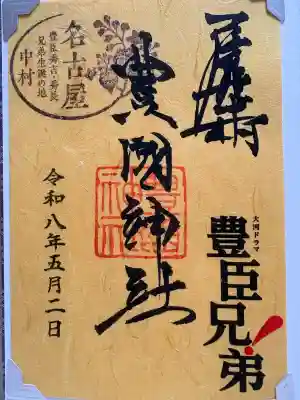 大河ドラマ
豊臣兄弟！
豊國神社
名古屋
豊臣秀吉・秀長
兄弟生誕の地
中村
令和八年五月二日